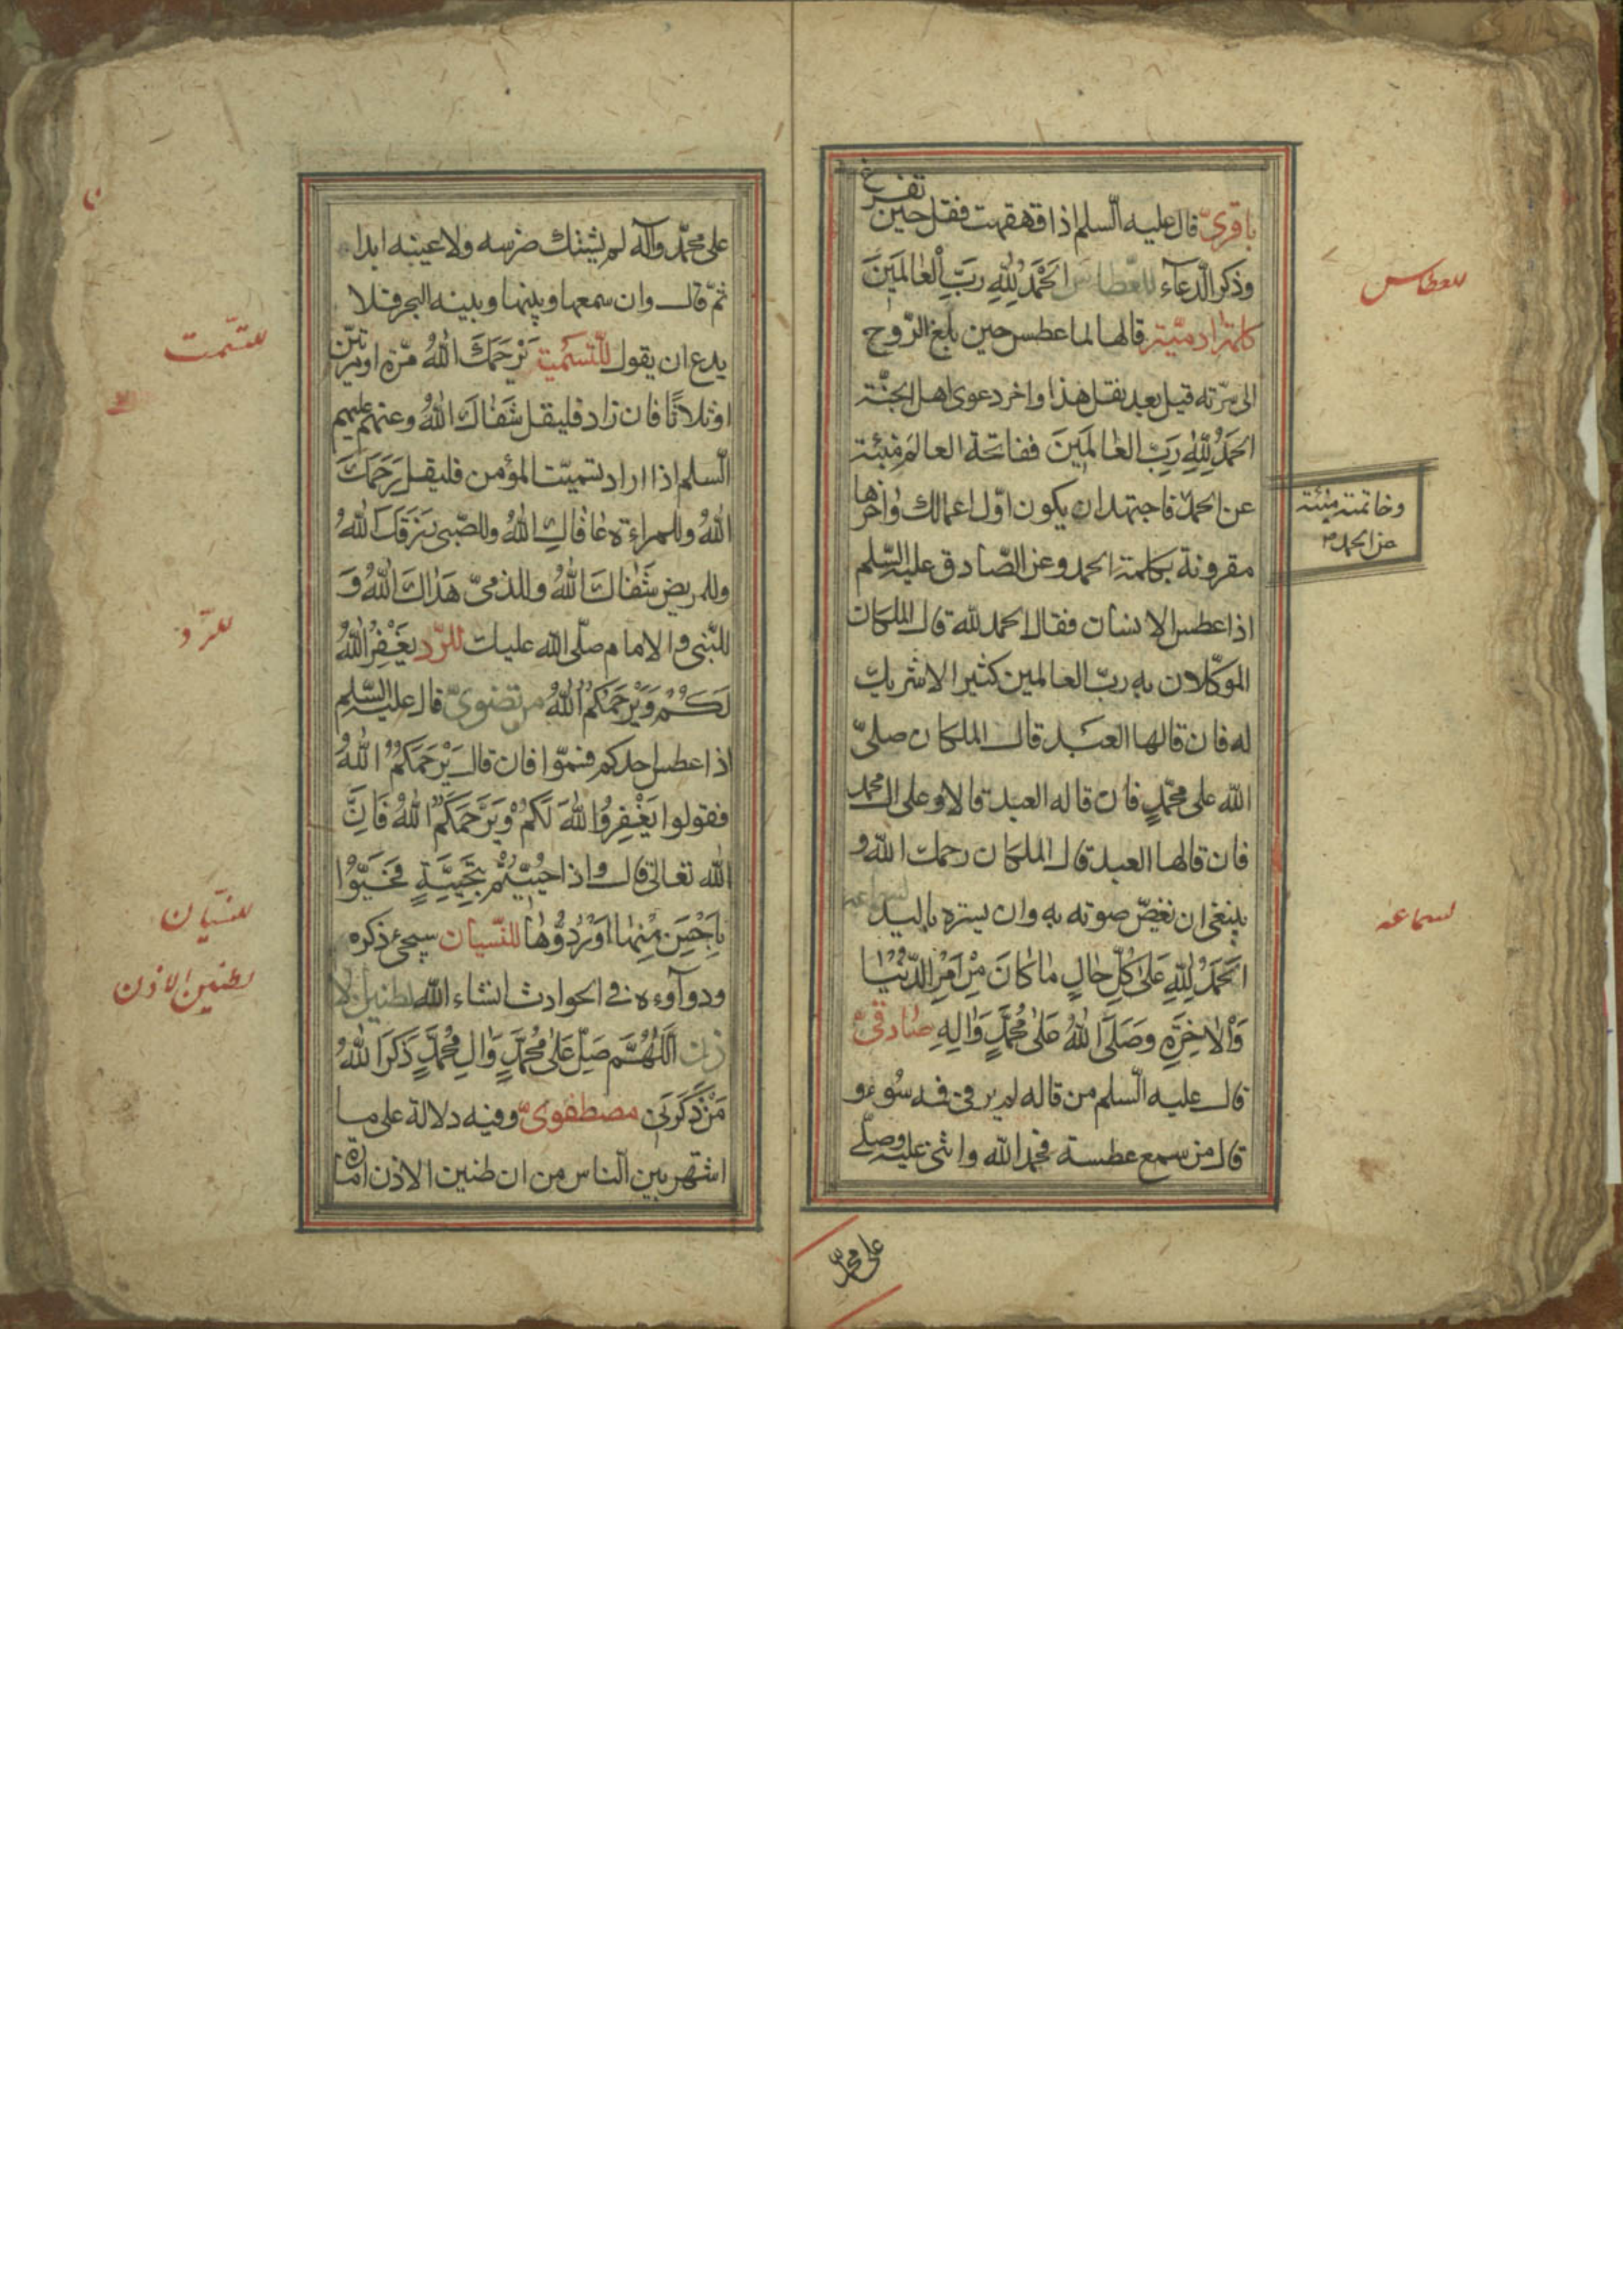 باقريّ قال عليه السّلم اذا قهقهت فقل حين تفرغ
وذكر الدّعآء للعطاس اَلْحَمْدُ لِلّٰهِ رَبِّ الْعٰالَمينَ
كلمة ادميّة قالها لما عطس حين بلغ الرّوح
الى سرّته قيل بعد نقل هذا واخر دعوى اهل الجنّة
الحَمْدُ لِلّٰهِ رَبِّ العٰالَمينَ ففاتحة العالم مبنيّة
عن الحمد فاجتهد ان يكون اوّل اعمالك واخرها
مقرونة بكلمة الحمد وعن الصّادق عليه السّلم
اذا عطس الانسان فقال الحمد لله قال الملكان
الموكّلان به ربّ العالمين كثيرا لا شريك
له فان قالها العبد قال الملكان صلىّ
الله على محمّد فان قاله العبد قالا وعلى ال محمد
فان قالها العبد قال الملكان رحمك الله و
ينبغى ان تغضّ صوته به وان يستره باليد
اَلْحَمْدُ لِلّٰهِ عَلىٰ كُلِّ حٰالٍ مٰا كٰانَ مِنْ اَمْرِ الدُّنْيٰا
وَالْاٰخِرَةِ وَصَلَّى اللّٰهُ عَلىٰ مُحَمَّدٍ وَاٰلِهِ صٰادقىّ
قال عليه السّلم من قاله لم ير فى فمه سُوء و
قال من سمع عطسة فحمد الله واثنى عليه وصلّى
على محمّد
للعطاس
وخاتمته مبنيّة
عن الحمد
لسماعه
على محمّد وآله لم يشتك ضرسه ولا عينه ابدا
ثمّ قال وان سمعها وبينها وبينه البحر فلا
يدع ان يقول للتّسميت يَرْحَمُكَ اللّٰهُ مرّة او مرّتين
او ثلاثًا فان زاد فليقل شَفٰاكَ اللّٰهُ وعنهم عليهم
السّلم اذا اراد تسميت المؤمن فليقل يَرْحَمُكَ
اللّٰهُ وللمراءة عٰافٰاكِ اللّٰهُ وللصّبى يَرْزَقَكَ اللّٰهُ
وللمريض شَفٰاكَ اللّٰهُ وللذمىّ هَدٰاكَ اللّٰهُ وَ
للنّبى والامام صلّى الله عليك للرّد يَغْفِرُ اللّٰهُ
لَكُمْ وَيَرْحَمُكُمُ اللّٰهُ مرتضوىّ قال عليه السّلم
اذا عطس احدكم فسمّتوا فان قال يَرْحَمُكُمُ اللّٰهُ
فقولوا يَغْفِرُ اللّٰهُ لَكُمْ وَيَرْحَمُكُمُ اللّٰهُ فَاِنَّ
الله تعالى قال واذا حُيّيتُمْ بِتَحِيَّةٍ فَحَيُّوا
بِاَحْسَنَ مِنْهٰا اَوْ رُدُّوهٰا للنّسيان سيجئ ذكره
ودوآوءه فى الحوادث انشاء الله لطنين الا
ذن اَللّٰهُمَّ صَلِّ عَلىٰ مُحَمَّدٍ وَاٰلِ مُحَمَّدٍ ذَكَرَ اللّٰهُ
مَنْ ذَكَرَنى مصطفوىّ وفيه دلالة على ما
اشتهر بين النّاس من ان طنين الاذن امارة
للتّسمت
للرّد
للنسيان
لطنين الاذن